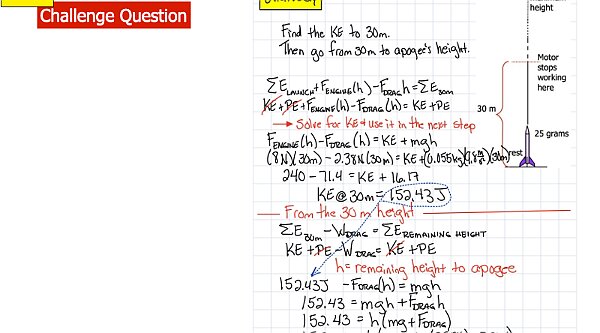 Challenge Question
height
Find the KE to 30m.
Then go from 30m to apogee's height.
Motor
stops
working
here
ΣE LAUNCH + F ENGINE (h) - F DRAG h = ΣE 30m
KE + PE + F ENGINE (h) - F DRAG (h) = KE + PE
→ Solve for KE & use it in the next step
30 m
25 grams
F ENGINE (h) - F DRAG (h) = KE + mgh
(8N)(30m) - 2.38N(30m) = KE + (0.055kg)(9.8 m/s²)(30m)
rest
240 - 71.4 = KE + 16.17
KE @ 30m = 152.43 J
From the 30 m height
ΣE 30m - W DRAG = ΣE REMAINING HEIGHT
KE + PE - W DRAG = KE + PE
h = remaining height to apogee
152.43J - F DRAG (h) = mgh
152.43 = mgh + F DRAG h
152.43 = h(mg + F DRAG)